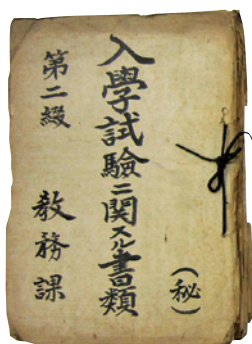 (秘)
入學試驗ニ関スル書類
第二綴　教務課